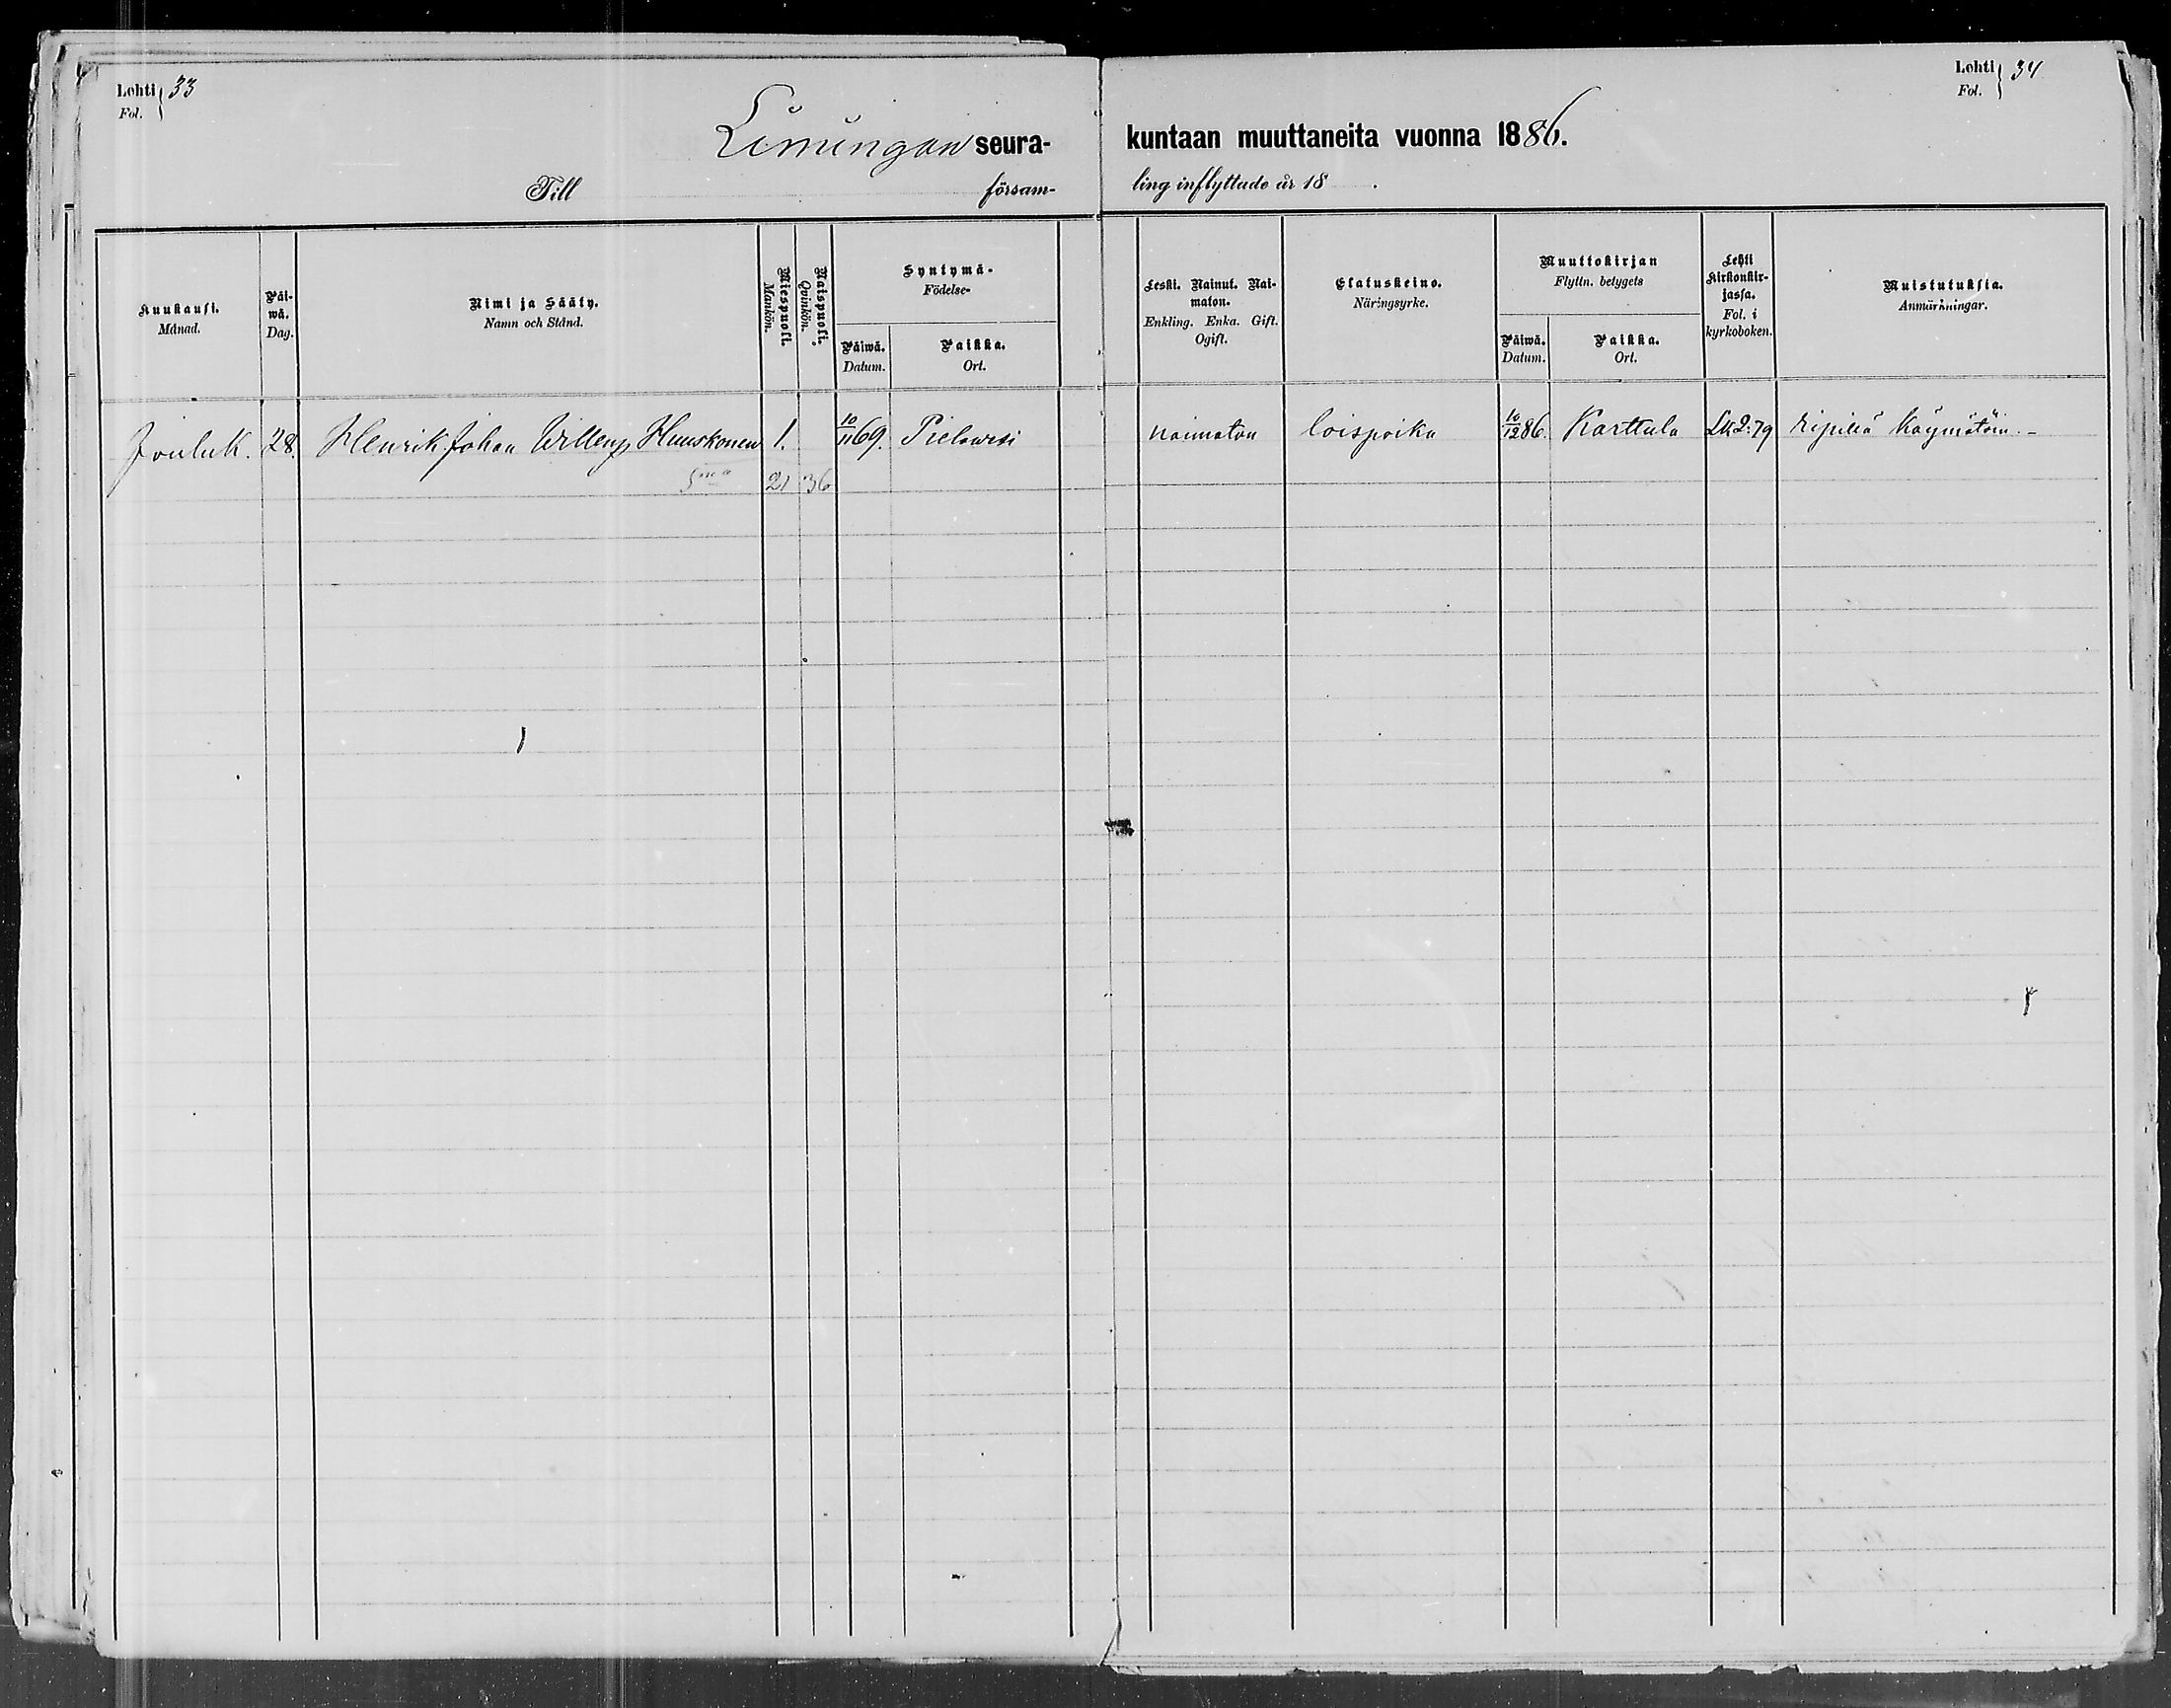 Lehti 33
Fol.
Limingan seura-
Till församm-
Lehti 34
Fol.
kuntaan muuttaneita vuonna 1886.
ling inflyttade år 18 .
Kuukausi.
Månad.
Päi-
wä.
Dag.
Nimi ja Sääty.
Namn och Stånd.
Miespuoli.
Mankön.
Naispuoli.
Qvinkön.
Syntymä-
Födelse-
Päiwä.
Datum.
Paikka.
Ort.
Leski. Nainut. Nai-
maton.
Enkling. Enka. Gift.
Ogift.
Elatuskeino.
Näringsyrke.
Muuttokirjan
Flyttn. betygets
Päiwä.
Datum.
Paikka.
Ort.
Lehti
Kirkonkir-
jassa.
Fol. i
kyrkoboken.
Muistutuksia.
Anmärkningar.
Jouluk. 28. Henrik Johan Huuskonen 1. 10/11 69. Pielavesi naimaton loispoika 10/12 86. Karttula Lk.2.79 ripillä käymätöin. -
Sma 21 36